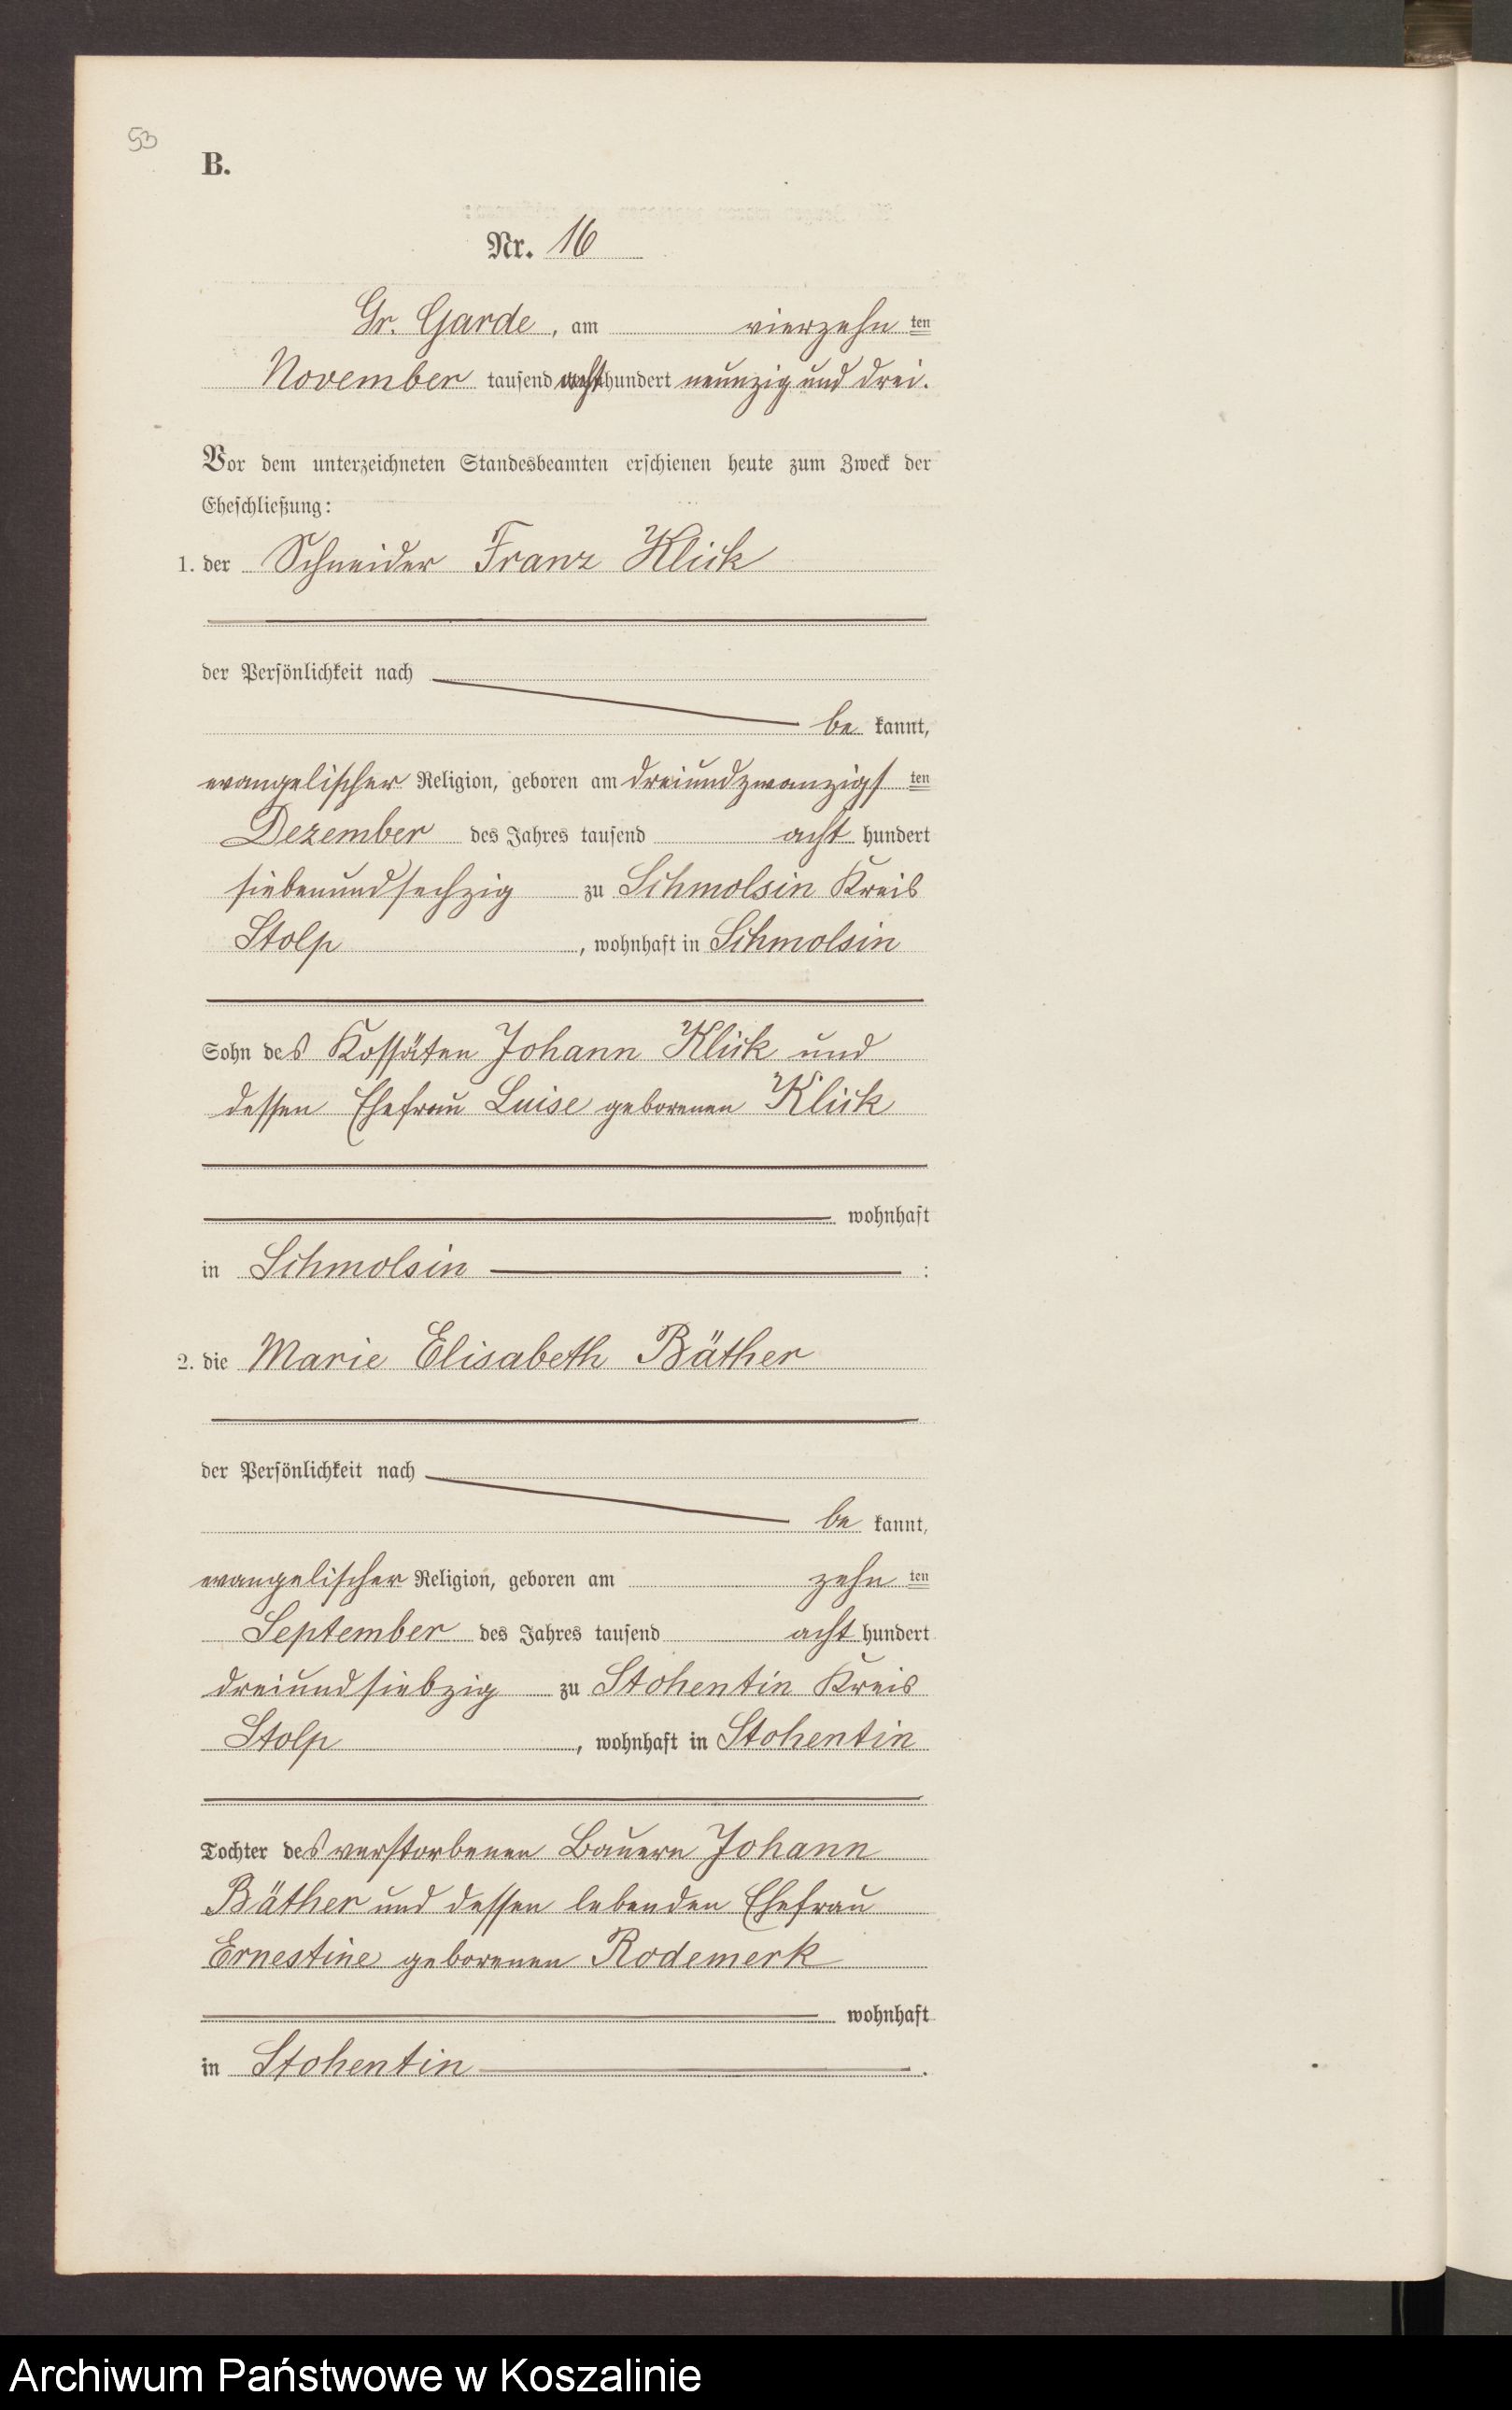 53
B.
Nr. 16
Gr. Garde, am vierzehn ten
November tausend acht hundert neunzig und drei.
Vor dem unterzeichneten Standesbeamten erschienen heute zum Zweck der
Eheschließung:
1. der Schneider Franz Klick
der Persönlichkeit nach
be kannt,
evangelischer Religion, geboren am dreiundzwanzigs ten
Dezember des Jahres tausend acht hundert
siebenundsechzig zu Schmolsin Kreis
Stolp, wohnhaft in Schmolsin
Sohn des Kossäten Johann Klick und
dessen Ehefrau Luise geborenen Klick
wohnhaft
in Schmolsin :
2. die Marie Elisabeth Bäther
der Persönlichkeit nach
be kannt,
evangelischer Religion, geboren am zehn ten
September des Jahres tausend acht hundert
dreiundsiebzig zu Stohentin Kreis
Stolp, wohnhaft in Stohentin
Tochter des verstorbenen Bauern Johann
Bäther und dessen lebenden Ehefrau
Ernestine geborenen Rodemerk
wohnhaft
in Stohentin .
Archiwum Państwowe w Koszalinie